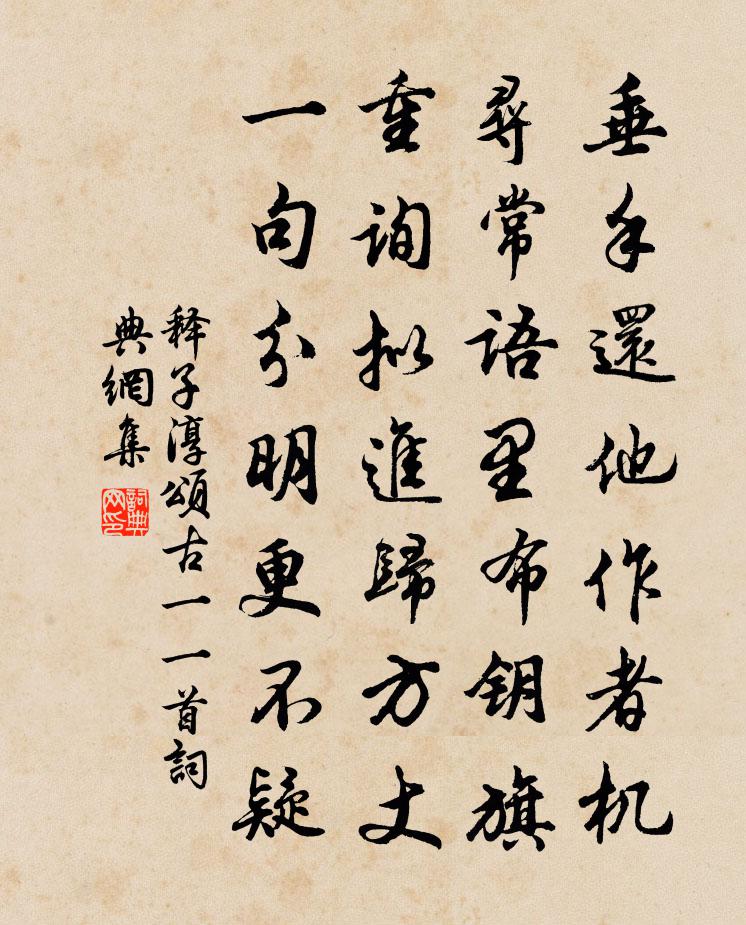 垂手還他作者机
尋常語里布钥旗
重询拟進歸方丈
一句分明更不疑
释子淳頌古一一首詞
典網集
詞典
网印